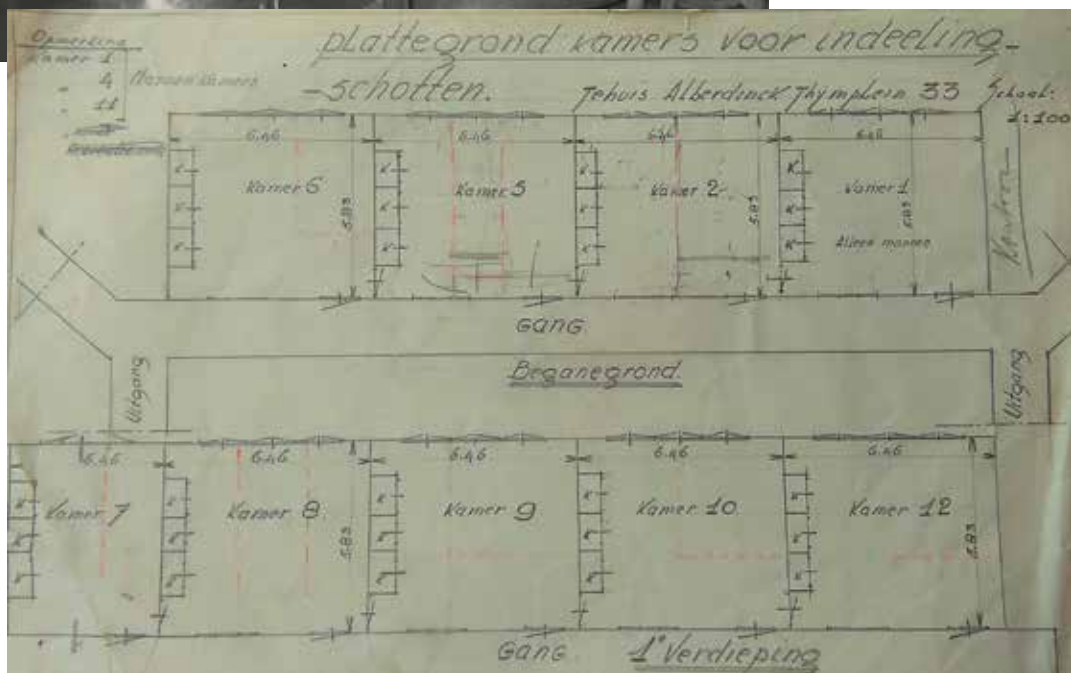 Opmerking
Kamer 1
" 4
" 11
Mannen Kamers
plattegrond kamers voor indeeling-
-schotten.
Tehuis Alberdinck Thymplein 33
Schaal:
1:100
6.46 6.46 6.46 6.46
K K K
K K K
K K K
Kamer 6
Kamer 5
Kamer 2
Kamer 1
Alleen mannen
5.83 5.83 5.83
GANG.
Uitgang
Beganegrond
Uitgang
6.46 6.46 6.46 6.46 6.46
Kamer 7
Kamer 8
Kamer 9
Kamer 10
Kamer 12
K K K K
K K K K
K K K K
5.83 5.83
GANG. 1e Verdieping